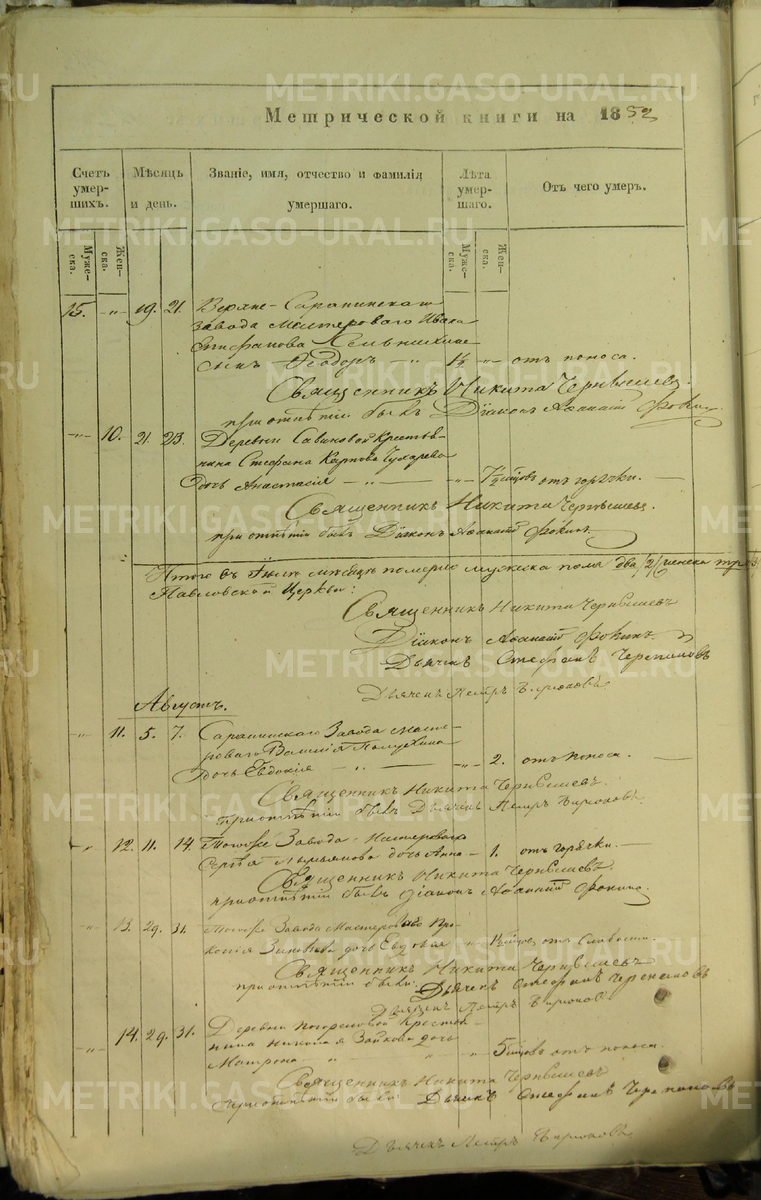 METRIKI.GASO-URAL.RU
Метрической книги на 1852
Счетъ умершихъ. Мѣсяцъ и день. Званіе, имя, отчество и фамилія умершаго. Лѣта умершаго. Отъ чего умеръ.
Мужеска. Женска. Мужеска. Женска.
15. -„- 19. 21. Верхне-Сарапинскаго
завода Мастероваго Ивана
Епифанова
сынъ Ѳеодоръ -„- 1½ -„- отъ поноса.
Священникъ Никита Чернышевъ
при отпѣтіи былъ Діаконъ Афанасій Фокинъ
-„- 10. 21. 23. Деревни Савиновой Крестья-
нина Стефана Карпова
дочь Анастасія -„- -„- 7½ мѣсяцовъ отъ горячки.
Священникъ Никита Чернышевъ
при отпѣтіи былъ Діаконъ Афанасій Фокинъ
Итого въ Іюлѣ мѣсяцѣ померло мужеска пола два /2/ женска три /3/
Павловской Церкви:
Священникъ Никита Чернышевъ
Діаконъ Афанасій Фокинъ
Дьячекъ Стефанъ Черепановъ
Дьячекъ Петръ Бирюковъ
Августъ.
-„- 11. 5. 7. Сарапинскаго Завода масте-
роваго Василія Полухина
дочь Евдокія -„- -„- 2. отъ поноса.
Священникъ Никита Чернышевъ
при отпѣтіи былъ Дьячекъ Петръ Бирюковъ
-„- 12. 11. 14. Тогоже Завода Мастероваго
Сергѣя дочь Анна - 1. отъ горячки.
Священникъ Никита Чернышевъ
при отпѣтіи былъ діаконъ Афанасій Фокинъ
-„- 13. 29. 31. Тогоже Завода Мастероваго Про-
копія Зиновьева дочь Евдокія отъ слабости.
Священникъ Никита Чернышевъ
при отпѣтіи были: Дьячекъ Стефанъ Черепановъ
Дьячекъ Петръ Бирюковъ
-„- 14. 29. 31. Деревни Крестья-
нина Николая Зайкова дочь
Матрона -„- 5 мѣсяцовъ отъ поноса.
Священникъ Никита Чернышевъ
при отпѣтіи были: Дьячекъ Стефанъ Черепановъ
Дьячекъ Петръ Бирюковъ